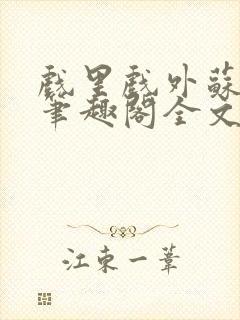 戲里戲外蘇
筆趣閣全文
江東一葦